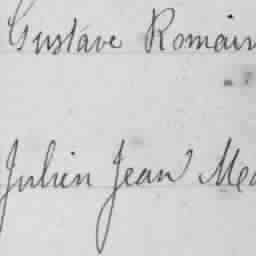 Gustave Romain
Julien Jean